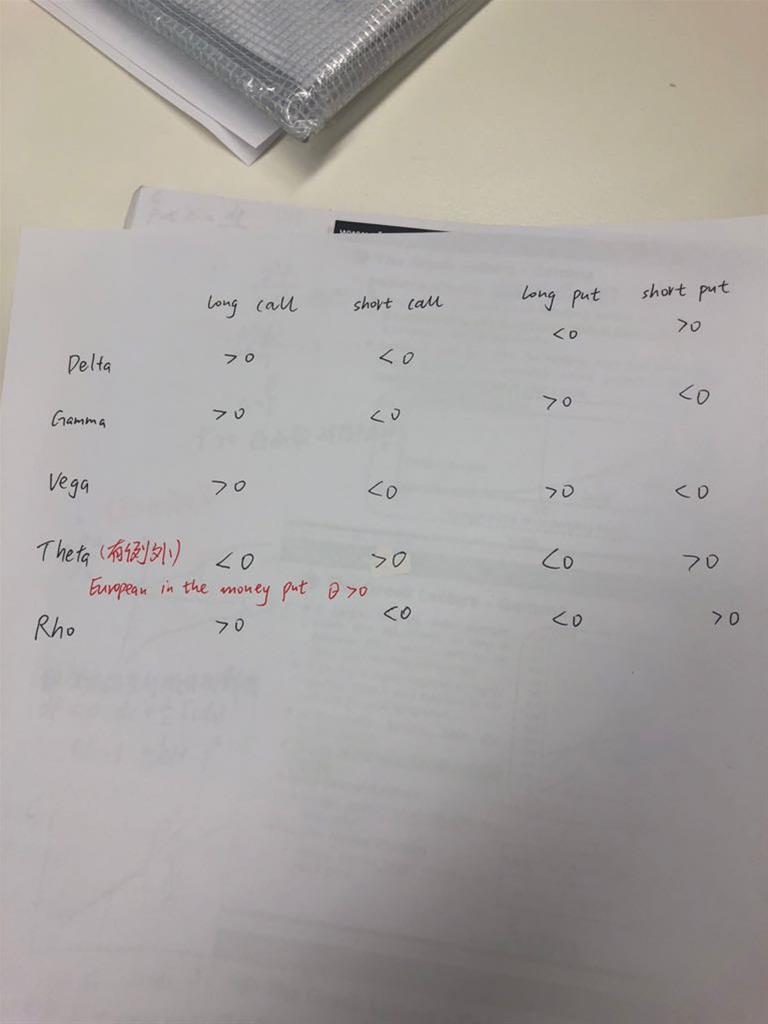 long call short call long put short put
Delta >0 <0 <0 >0
Gamma >0 <0 >0 <0
Vega >0 <0 >0 <0
Theta (有例外) <0 >0 <0 >0
European in the money put θ >0
Rho >0 <0 <0 >0